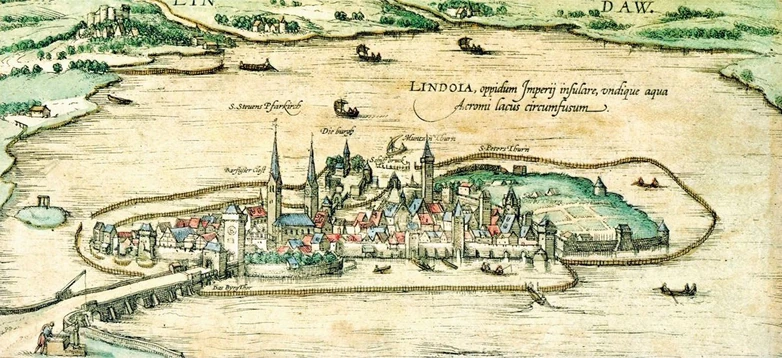 LIN DAW.
LINDOIA, oppidum Imperij insulare, undique aqua
Acromi lacus circumfusum
S. Steuens Pfarkirch
Die burgh
S. Peters Thurn
Barfusser Clost